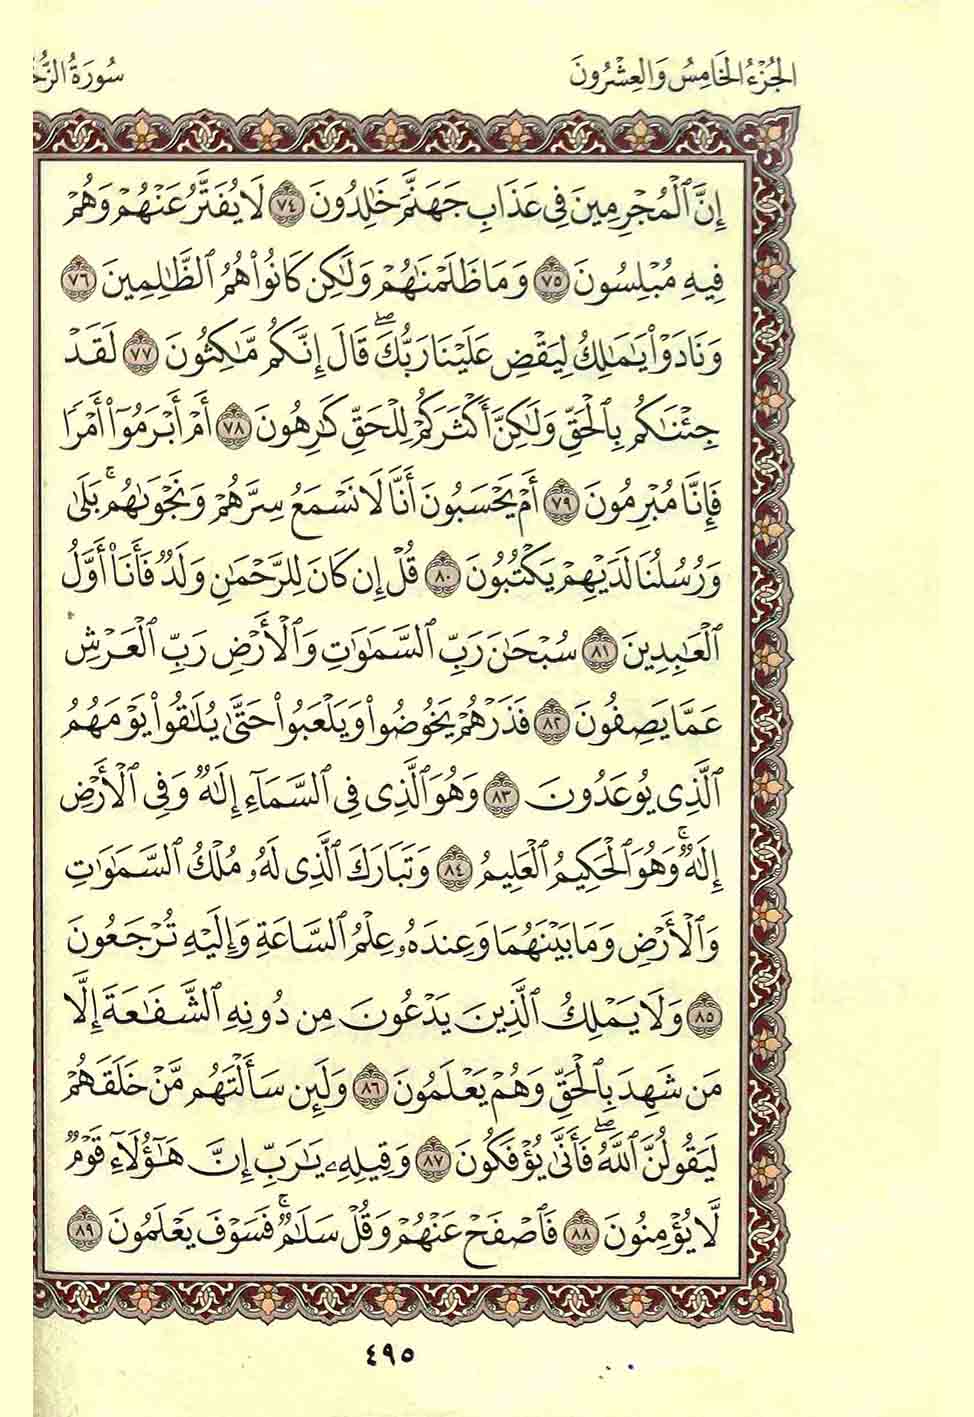 الجُزْءُ الخَامِسُ وَالعِشْرُونَ
سُورَةُ
إِنَّ ٱلْمُجْرِمِينَ فِى عَذَابِ جَهَنَّمَ خَٰلِدُونَ ٧٤ لَا يُفَتَّرُ عَنْهُمْ وَهُمْ
فِيهِ مُبْلِسُونَ ٧٥ وَمَا ظَلَمْنَٰهُمْ وَلَٰكِن كَانُوا۟ هُمُ ٱلظَّٰلِمِينَ ٧٦
وَنَادَوْا۟ يَٰمَٰلِكُ لِيَقْضِ عَلَيْنَا رَبُّكَ ۖ قَالَ إِنَّكُم مَّٰكِثُونَ ٧٧ لَقَدْ
جِئْنَٰكُم بِٱلْحَقِّ وَلَٰكِنَّ أَكْثَرَكُمْ لِلْحَقِّ كَٰرِهُونَ ٧٨ أَمْ أَبْرَمُوٓا۟ أَمْرًا
فَإِنَّا مُبْرِمُونَ ٧٩ أَمْ يَحْسَبُونَ أَنَّا لَا نَسْمَعُ سِرَّهُمْ وَنَجْوَىٰهُم ۚ بَلَىٰ
وَرُسُلُنَا لَدَيْهِمْ يَكْتُبُونَ ٨٠ قُلْ إِن كَانَ لِلرَّحْمَٰنِ وَلَدٌ فَأَنَا۠ أَوَّلُ
ٱلْعَٰبِدِينَ ٨١ سُبْحَٰنَ رَبِّ ٱلسَّمَٰوَٰتِ وَٱلْأَرْضِ رَبِّ ٱلْعَرْشِ
عَمَّا يَصِفُونَ ٨٢ فَذَرْهُمْ يَخُوضُوا۟ وَيَلْعَبُوا۟ حَتَّىٰ يُلَٰقُوا۟ يَوْمَهُمُ
ٱلَّذِى يُوعَدُونَ ٨٣ وَهُوَ ٱلَّذِى فِى ٱلسَّمَآءِ إِلَٰهٌ وَفِى ٱلْأَرْضِ
إِلَٰهٌ ۚ وَهُوَ ٱلْحَكِيمُ ٱلْعَلِيمُ ٨٤ وَتَبَارَكَ ٱلَّذِى لَهُۥ مُلْكُ ٱلسَّمَٰوَٰتِ
وَٱلْأَرْضِ وَمَا بَيْنَهُمَا وَعِندَهُۥ عِلْمُ ٱلسَّاعَةِ وَإِلَيْهِ تُرْجَعُونَ
٨٥ وَلَا يَمْلِكُ ٱلَّذِينَ يَدْعُونَ مِن دُونِهِ ٱلشَّفَٰعَةَ إِلَّا
مَن شَهِدَ بِٱلْحَقِّ وَهُمْ يَعْلَمُونَ ٨٦ وَلَئِن سَأَلْتَهُم مَّنْ خَلَقَهُمْ
لَيَقُولُنَّ ٱللَّهُ ۖ فَأَنَّىٰ يُؤْفَكُونَ ٨٧ وَقِيلِهِۦ يَٰرَبِّ إِنَّ هَٰٓؤُلَآءِ قَوْمٌ
لَّا يُؤْمِنُونَ ٨٨ فَٱصْفَحْ عَنْهُمْ وَقُلْ سَلَٰمٌ ۚ فَسَوْفَ يَعْلَمُونَ ٨٩
٤٩٥